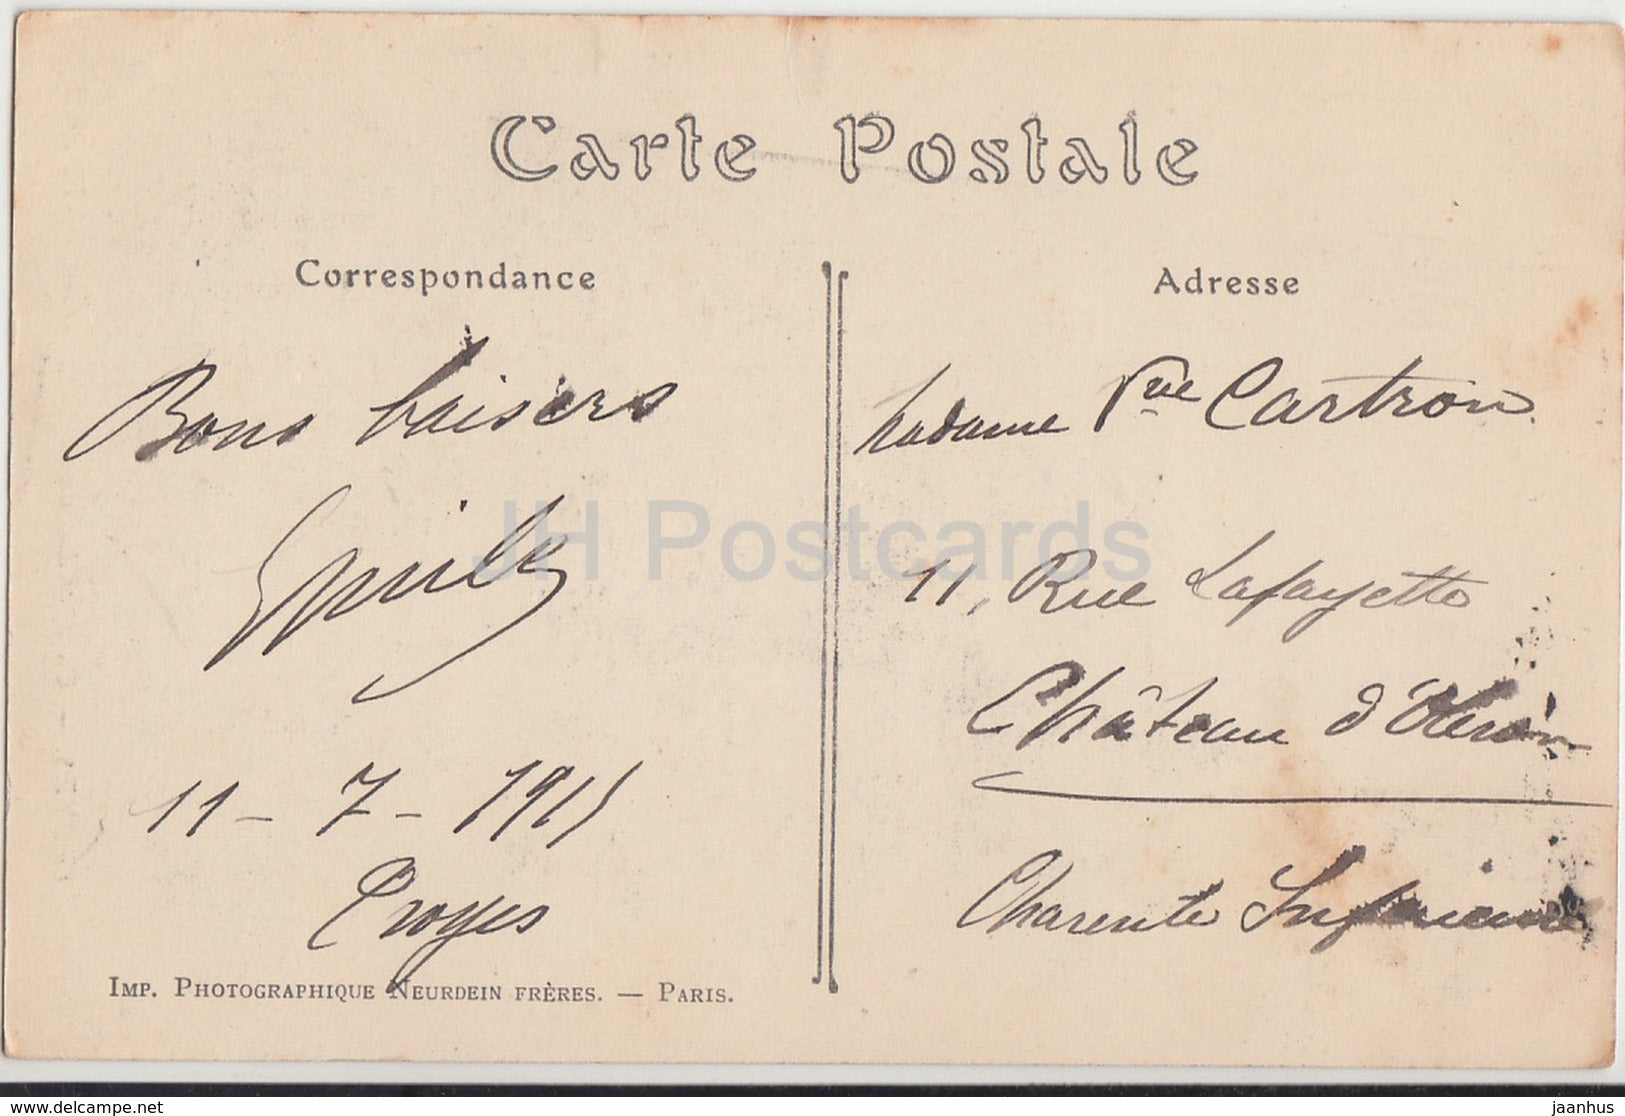 Carte Postale
Correspondance
Bons baisers
11 - 7 - 1911
Troyes
Imp. Photographique Neurdein frères. — Paris.
Adresse
Madame Vve Cartron
11, Rue Lafayette
Château d'Oleron
Charente Inférieure
JH Postcards
delcampe.net
jaanhus